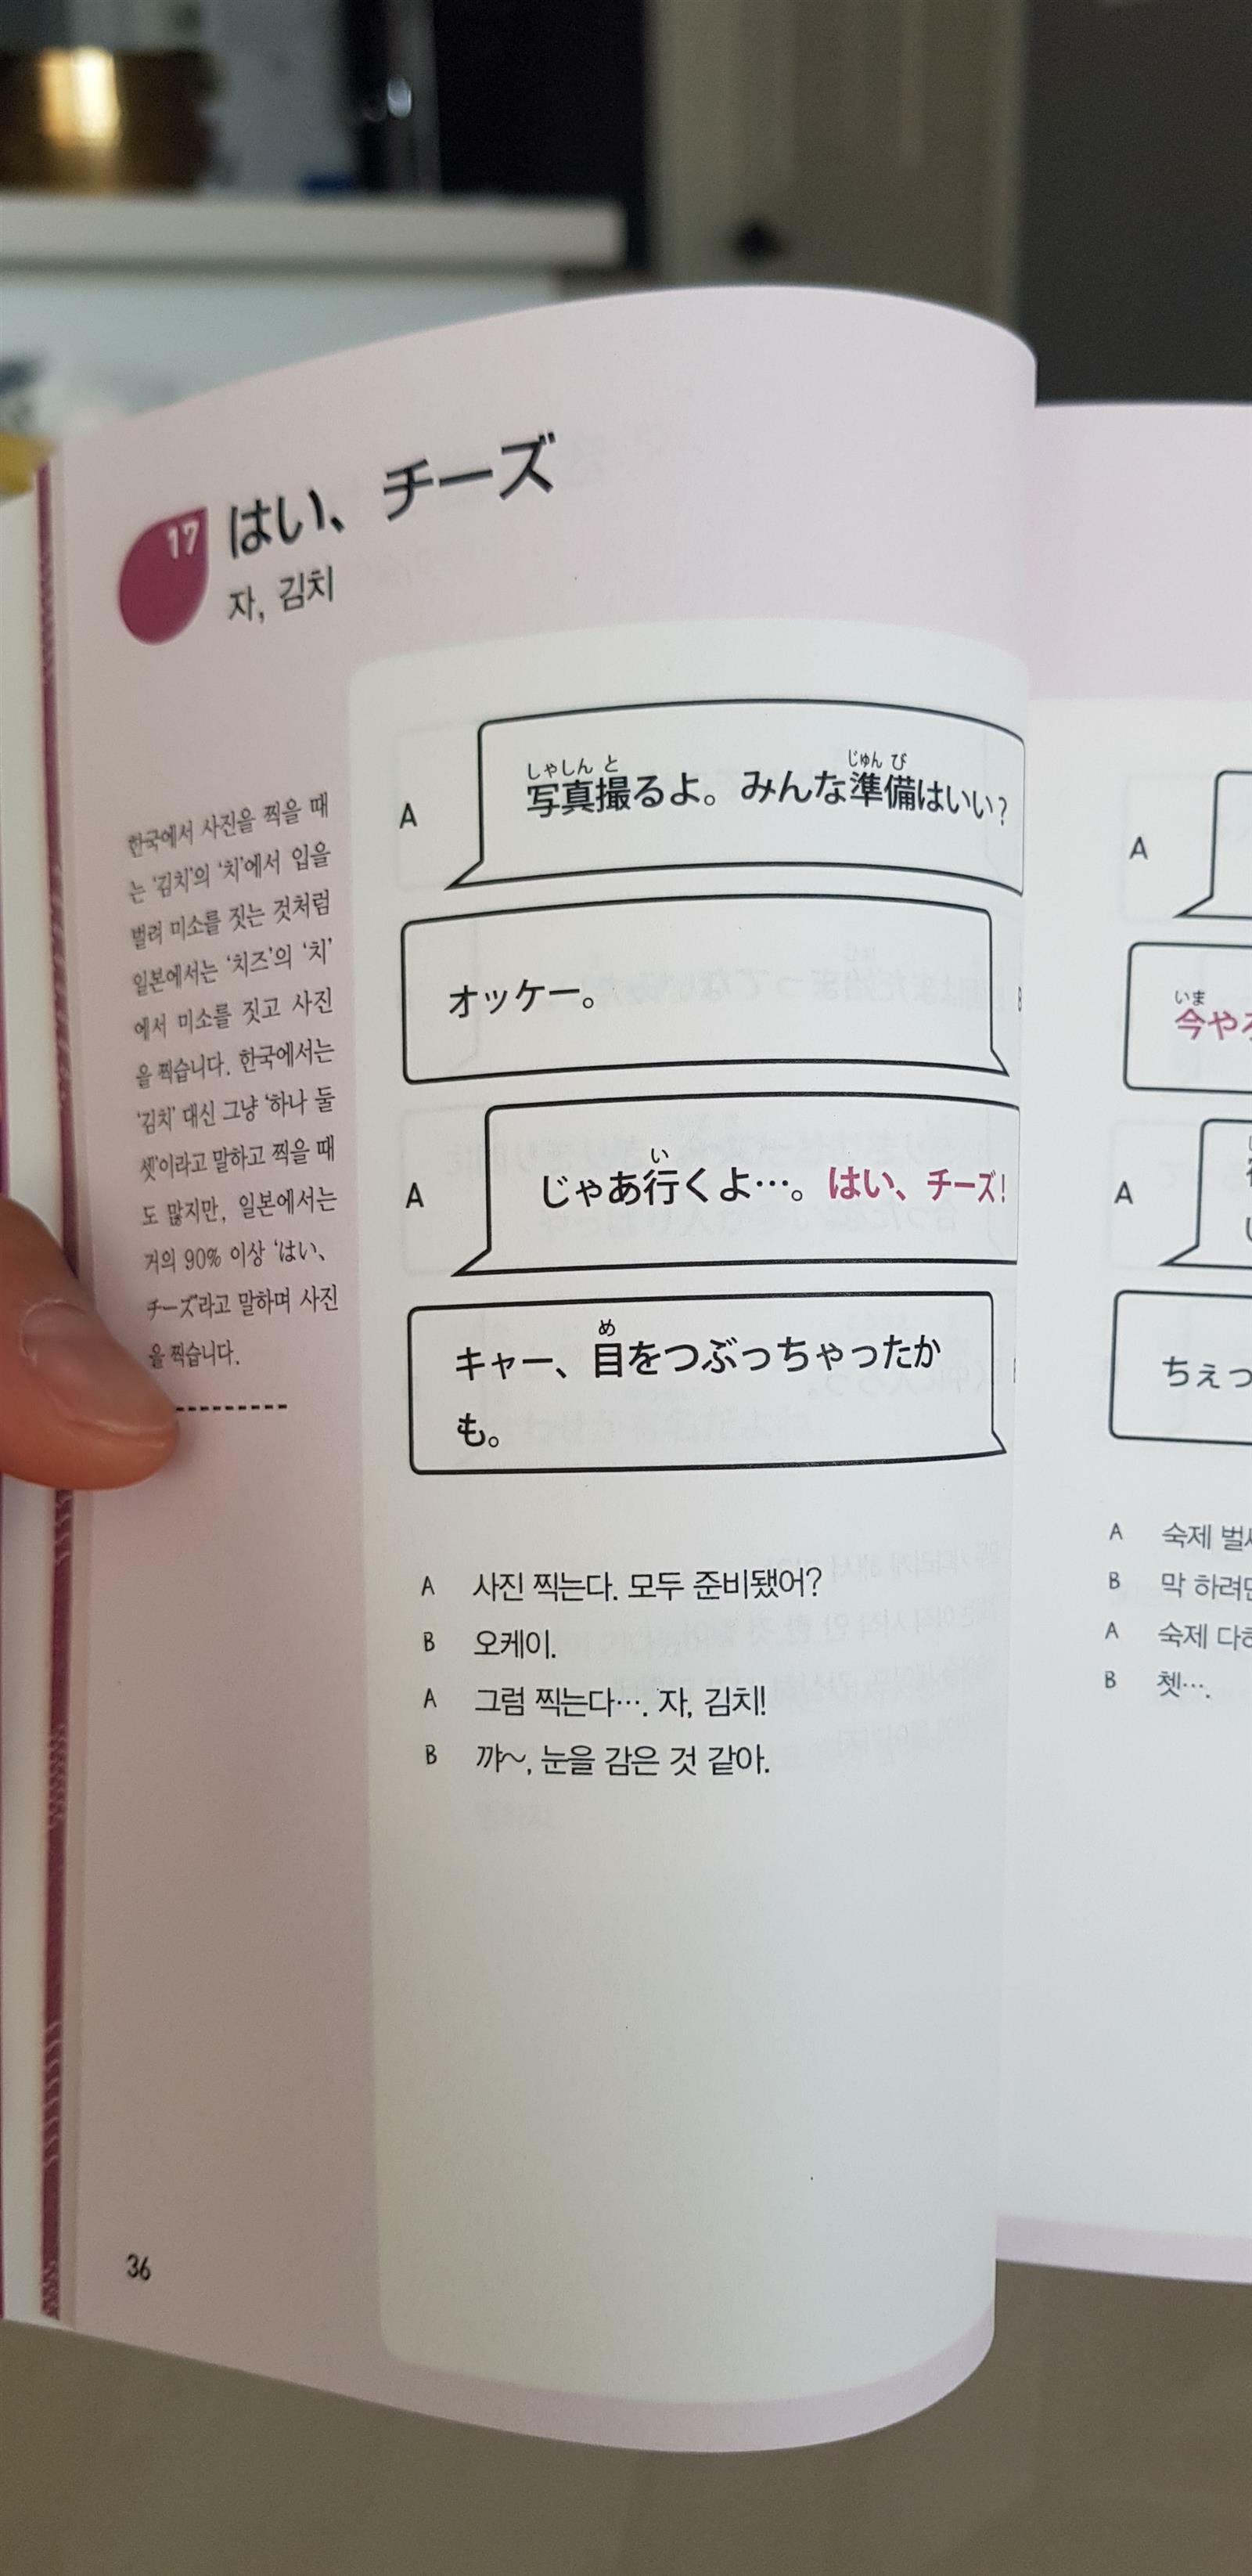 17
はい、チーズ
자, 김치
한국에서 사진을 찍을 때
는 '김치'의 '치'에서 입을
벌려 미소를 짓는 것처럼
일본에서는 '치즈'의 '치'
에서 미소를 짓고 사진
을 찍습니다. 한국에서는
'김치' 대신 그냥 '하나 둘
셋'이라고 말하고 찍을 때
도 많지만, 일본에서는
거의 90% 이상 'はい、
チーズ'라고 말하며 사진
을 찍습니다.
しゃしん と じゅん び
A 写真撮るよ。みんな準備はいい?
オッケー。
い
A じゃあ行くよ…。はい、チーズ!
め
キャー、目をつぶっちゃったか
も。
A 사진 찍는다. 모두 준비됐어?
B 오케이.
A 그럼 찍는다…. 자, 김치!
B 꺄~, 눈을 감은 것 같아.
36
A
いま
今や
A
ちぇっ
A 숙제
B 막 하려
A 숙제
B 쳇….